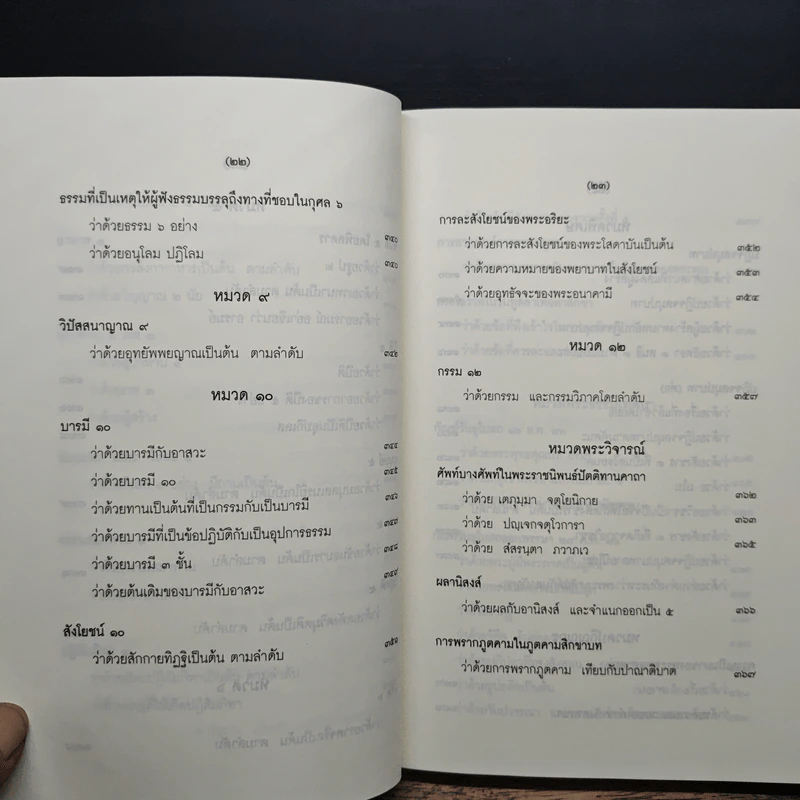 (๒๒)
ธรรมที่เป็นเหตุให้ผู้ฟังธรรมบรรลุถึงทางที่ชอบในกุศล ๖
ว่าด้วยธรรม ๖ อย่าง ๓๔๐
ว่าด้วยอนุโลม ปฏิโลม ๓๔๐
หมวด ๙
วิปัสสนาญาณ ๙
ว่าด้วยอุทยัพพยญาณเป็นต้น ตามลำดับ ๓๔๒
หมวด ๑๐
บารมี ๑๐
ว่าด้วยบารมีกับอาสวะ ๓๔๔
ว่าด้วยบารมี ๑๐ ๓๔๕
ว่าด้วยทานเป็นต้นที่เป็นกรรมกับเป็นบารมี ๓๔๖
ว่าด้วยบารมีที่เป็นข้อปฏิบัติกับเป็นอุปการธรรม ๓๔๗
ว่าด้วยบารมี ๓ ชั้น ๓๔๘
ว่าด้วยต้นเดิมของบารมีกับอาสวะ ๓๔๙
สังโยชน์ ๑๐
ว่าด้วยสักกายทิฏฐิเป็นต้น ตามลำดับ ๓๕๑
(๒๓)
การละสังโยชน์ของพระอริยะ
ว่าด้วยการละสังโยชน์ของพระโสดาบันเป็นต้น ๓๕๒
ว่าด้วยความหมายของพยาบาทในสังโยชน์ ๓๕๓
ว่าด้วยอุทธัจจะของพระอนาคามี ๓๕๔
หมวด ๑๒
กรรม ๑๒
ว่าด้วยกรรม และกรรมวิภาคโดยลำดับ ๓๕๗
หมวดพระวิจารณ์
ศัพท์บางศัพท์ในพระราชนิพนธ์ปัตติทานคาถา
ว่าด้วย เตภุมฺมา จตุโยนิกาย ๓๖๒
ว่าด้วย ปญฺเจกจตุโวการา ๓๖๓
ว่าด้วย สํสรนฺตา ภวาภเว ๓๖๕
ผลานิสงส์
ว่าด้วยผลกับอานิสงส์ และจำแนกออกเป็น ๕ ๓๖๖
การพรากภูตคามในภูตคามสิกขาบท
ว่าด้วยการพรากภูตคาม เทียบกับปาณาติบาต ๓๖๗